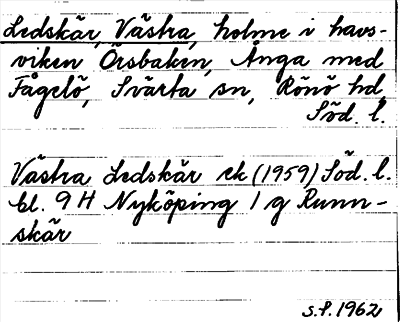 Ledskär, Västra, holme i havs-
viken Örsbaken, Ånga med
Fågelö, Svärta sn, Rönö hd,
Söd. l.
Västra Ledskär ek (1959) Söd. l.
bl. 9 H Nyköping 1 g Runn-
skär
s.f. 1962